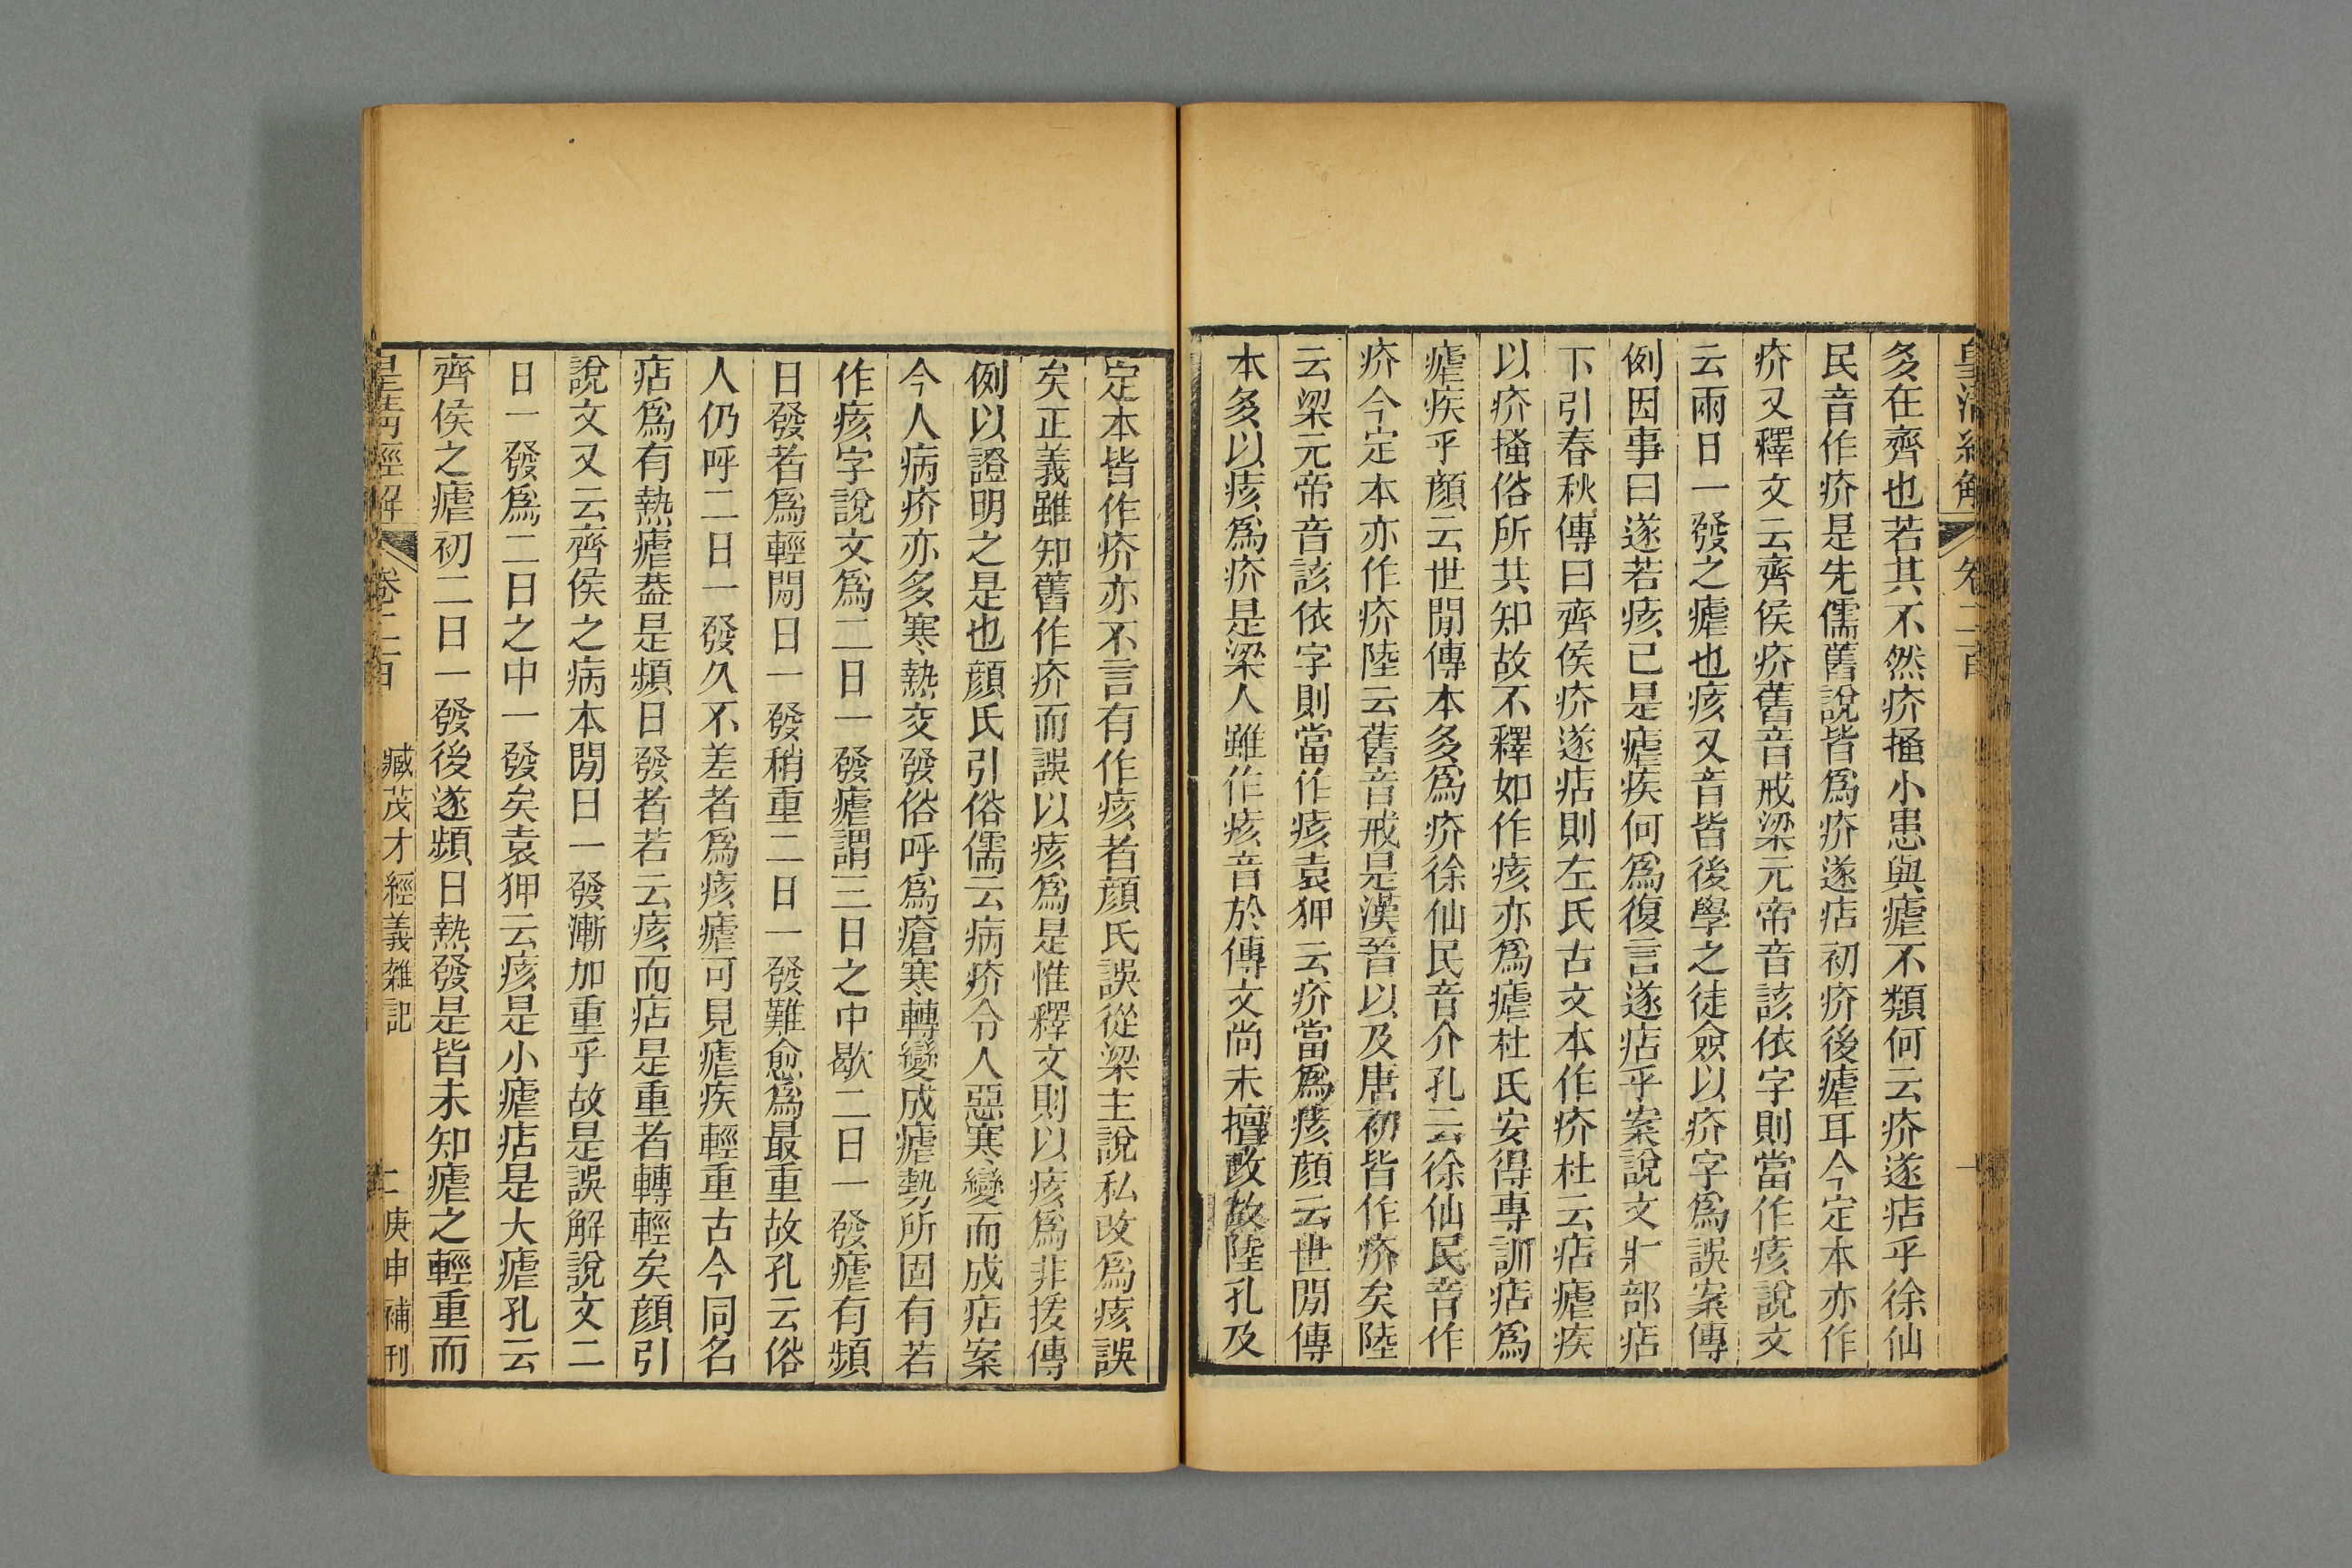 皇清經解 卷二百
多在齊也若其不然疥搔小患與瘧不類何云疥遂痁乎徐仙
民音作疥是先儒舊說皆爲疥遂痁初疥後瘧耳今定本亦作
疥又釋文云齊侯疥舊音戒梁元帝音該依字則當作痎說文
云兩日一發之瘧也痎又音皆後學之徒僉以疥字爲誤案傳
例因事曰遂若痎已是瘧疾何爲復言遂痁乎案說文疒部痁
下引春秋傳曰齊侯疥遂痁則左氏古文本作疥杜云痁瘧疾
以疥搔俗所共知故不釋如作痎亦爲瘧杜氏安得專訓痁爲
瘧疾乎顏云世閒傳本多爲疥徐仙民音介孔云徐仙民音作
疥今定本亦作疥陸云舊音戒是漢晉以及唐初皆作疥矣陸
云梁元帝音該依字則當作痎袁狎云疥當爲痎顏云世閒傳
本多以痎爲疥是梁人雖作痎音於傳文尚未擅改故陸孔及
定本皆作疥亦不言有作痎者顏氏誤從梁主說私改爲痎誤
矣正義雖知舊作疥而誤以痎爲是惟釋文則以痎爲非援傳
例以證明之是也顏氏引俗儒云病疥令人惡寒變而成痁案
今人病疥亦多寒熱交發俗呼爲瘡寒轉變成瘧勢所固有若
作痎字說文爲二日一發瘧謂三日之中歇二日一發瘧有頻
日發者爲輕閒日一發稍重二日一發難愈爲最重故孔云俗
人仍呼二日一發久不差者爲痎瘧可見瘧疾輕重古今同名
痁爲有熱瘧葢是頻日發者若云痎而痁是重者轉輕矣顏引
說文又云齊侯之病本閒日一發漸加重乎故是誤解說文二
日一發爲二日之中一發矣袁狎云痎是小瘧痁是大瘧孔云
齊侯之瘧初二日一發後遂頻日熱發是皆未知瘧之輕重而
皇清經解 卷二百 臧茂才經義雜記 二 庚申補刊